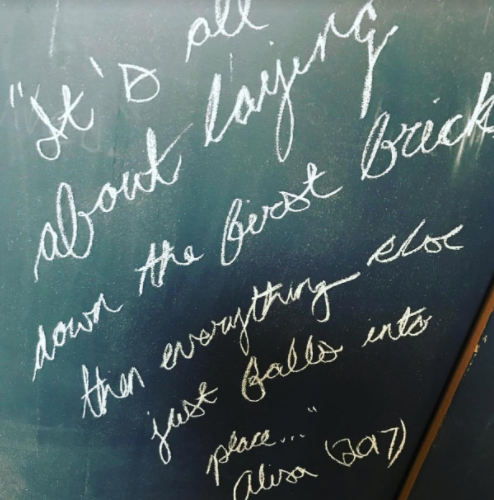 "It's all
about laying
down the first brick
then everything else
just falls into
place..."
Alisa (2017)